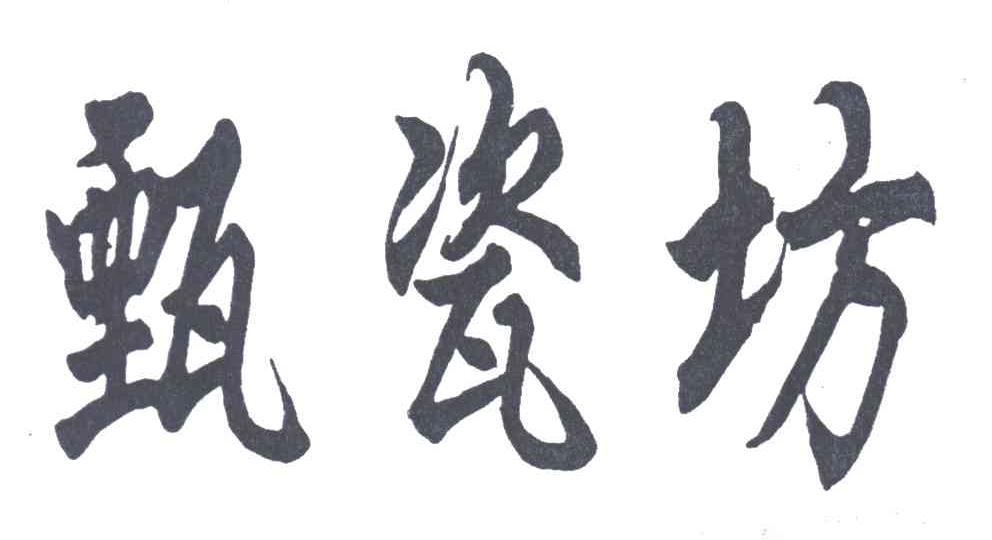 甄瓷坊